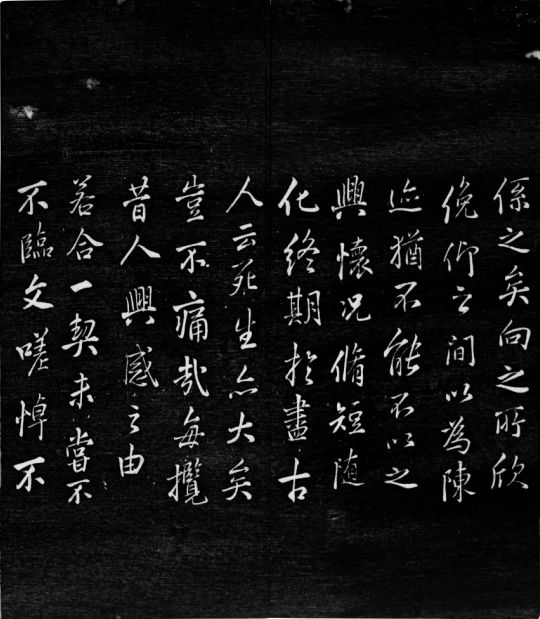 係之矣向之所欣
俛仰之間以為陳
迹猶不能不以之
興懷況脩短随
化終期於盡古
人云死生亦大矣
豈不痛哉每攬
昔人興感之由
若合一契未嘗不
不臨文嗟悼不